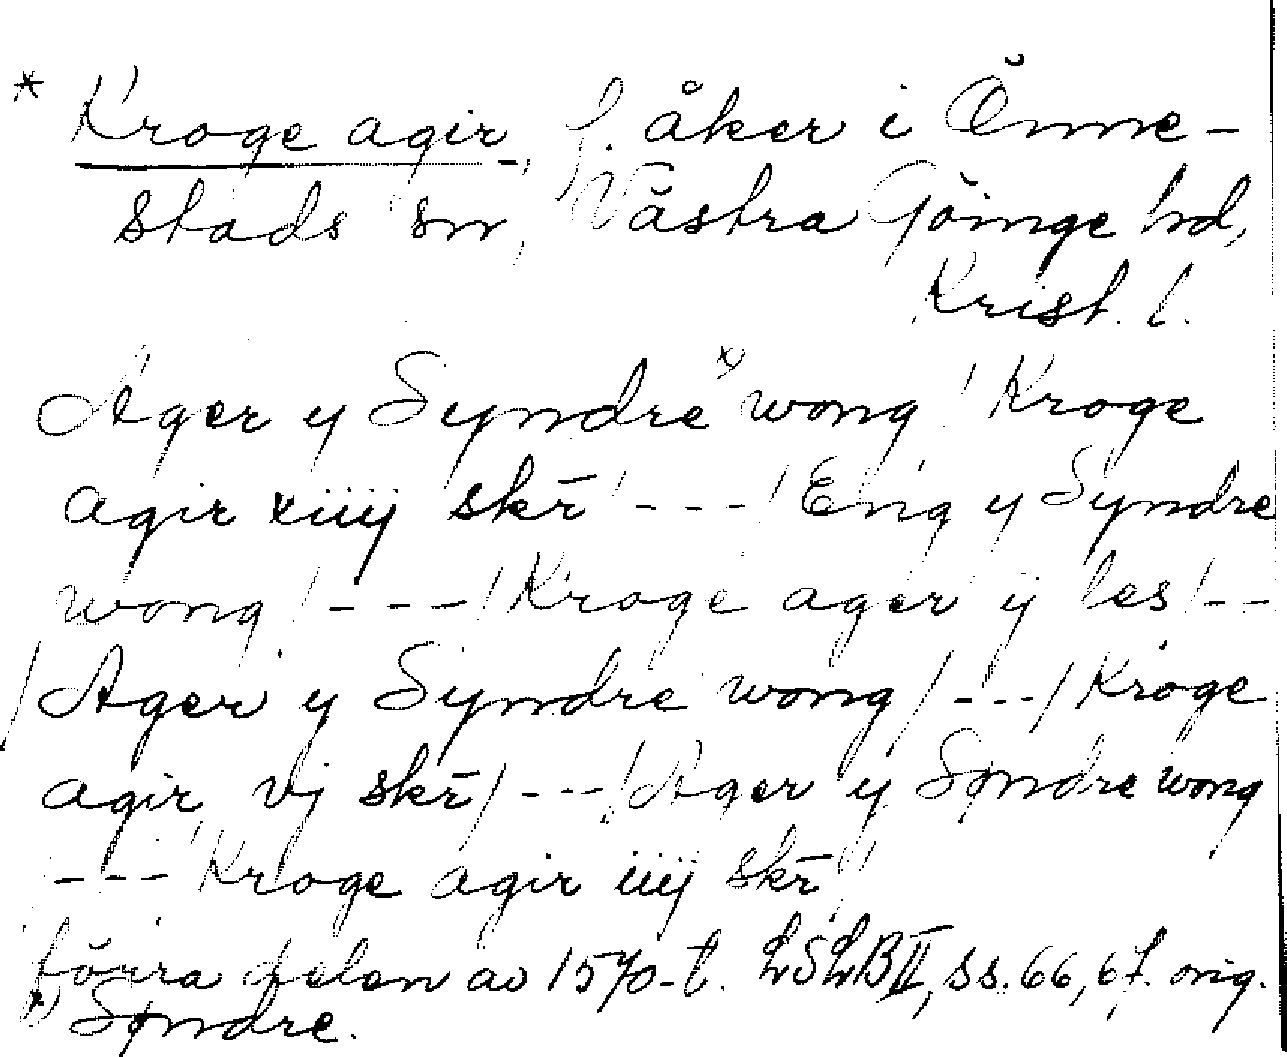 * Kroge agir, f. åker i Önne-
stads sn, Västra Göinge hd,
Krist. l.
Ager y Syndre x) wong / Kroge
agir xiiij skr̄ / - - - / Eng y Syndre
wong / - - - / Kroge ager ij les / - -
/ Ager y Syndre wong / - - - / Kroge
agir vj skr̄ / - - - / Ager y Søndre wong
- - - / Kroge agir iiij skr̄ /
förra delen av 1570-t. LSLB II, ss. 66, 67. orig.
x) Søndre.